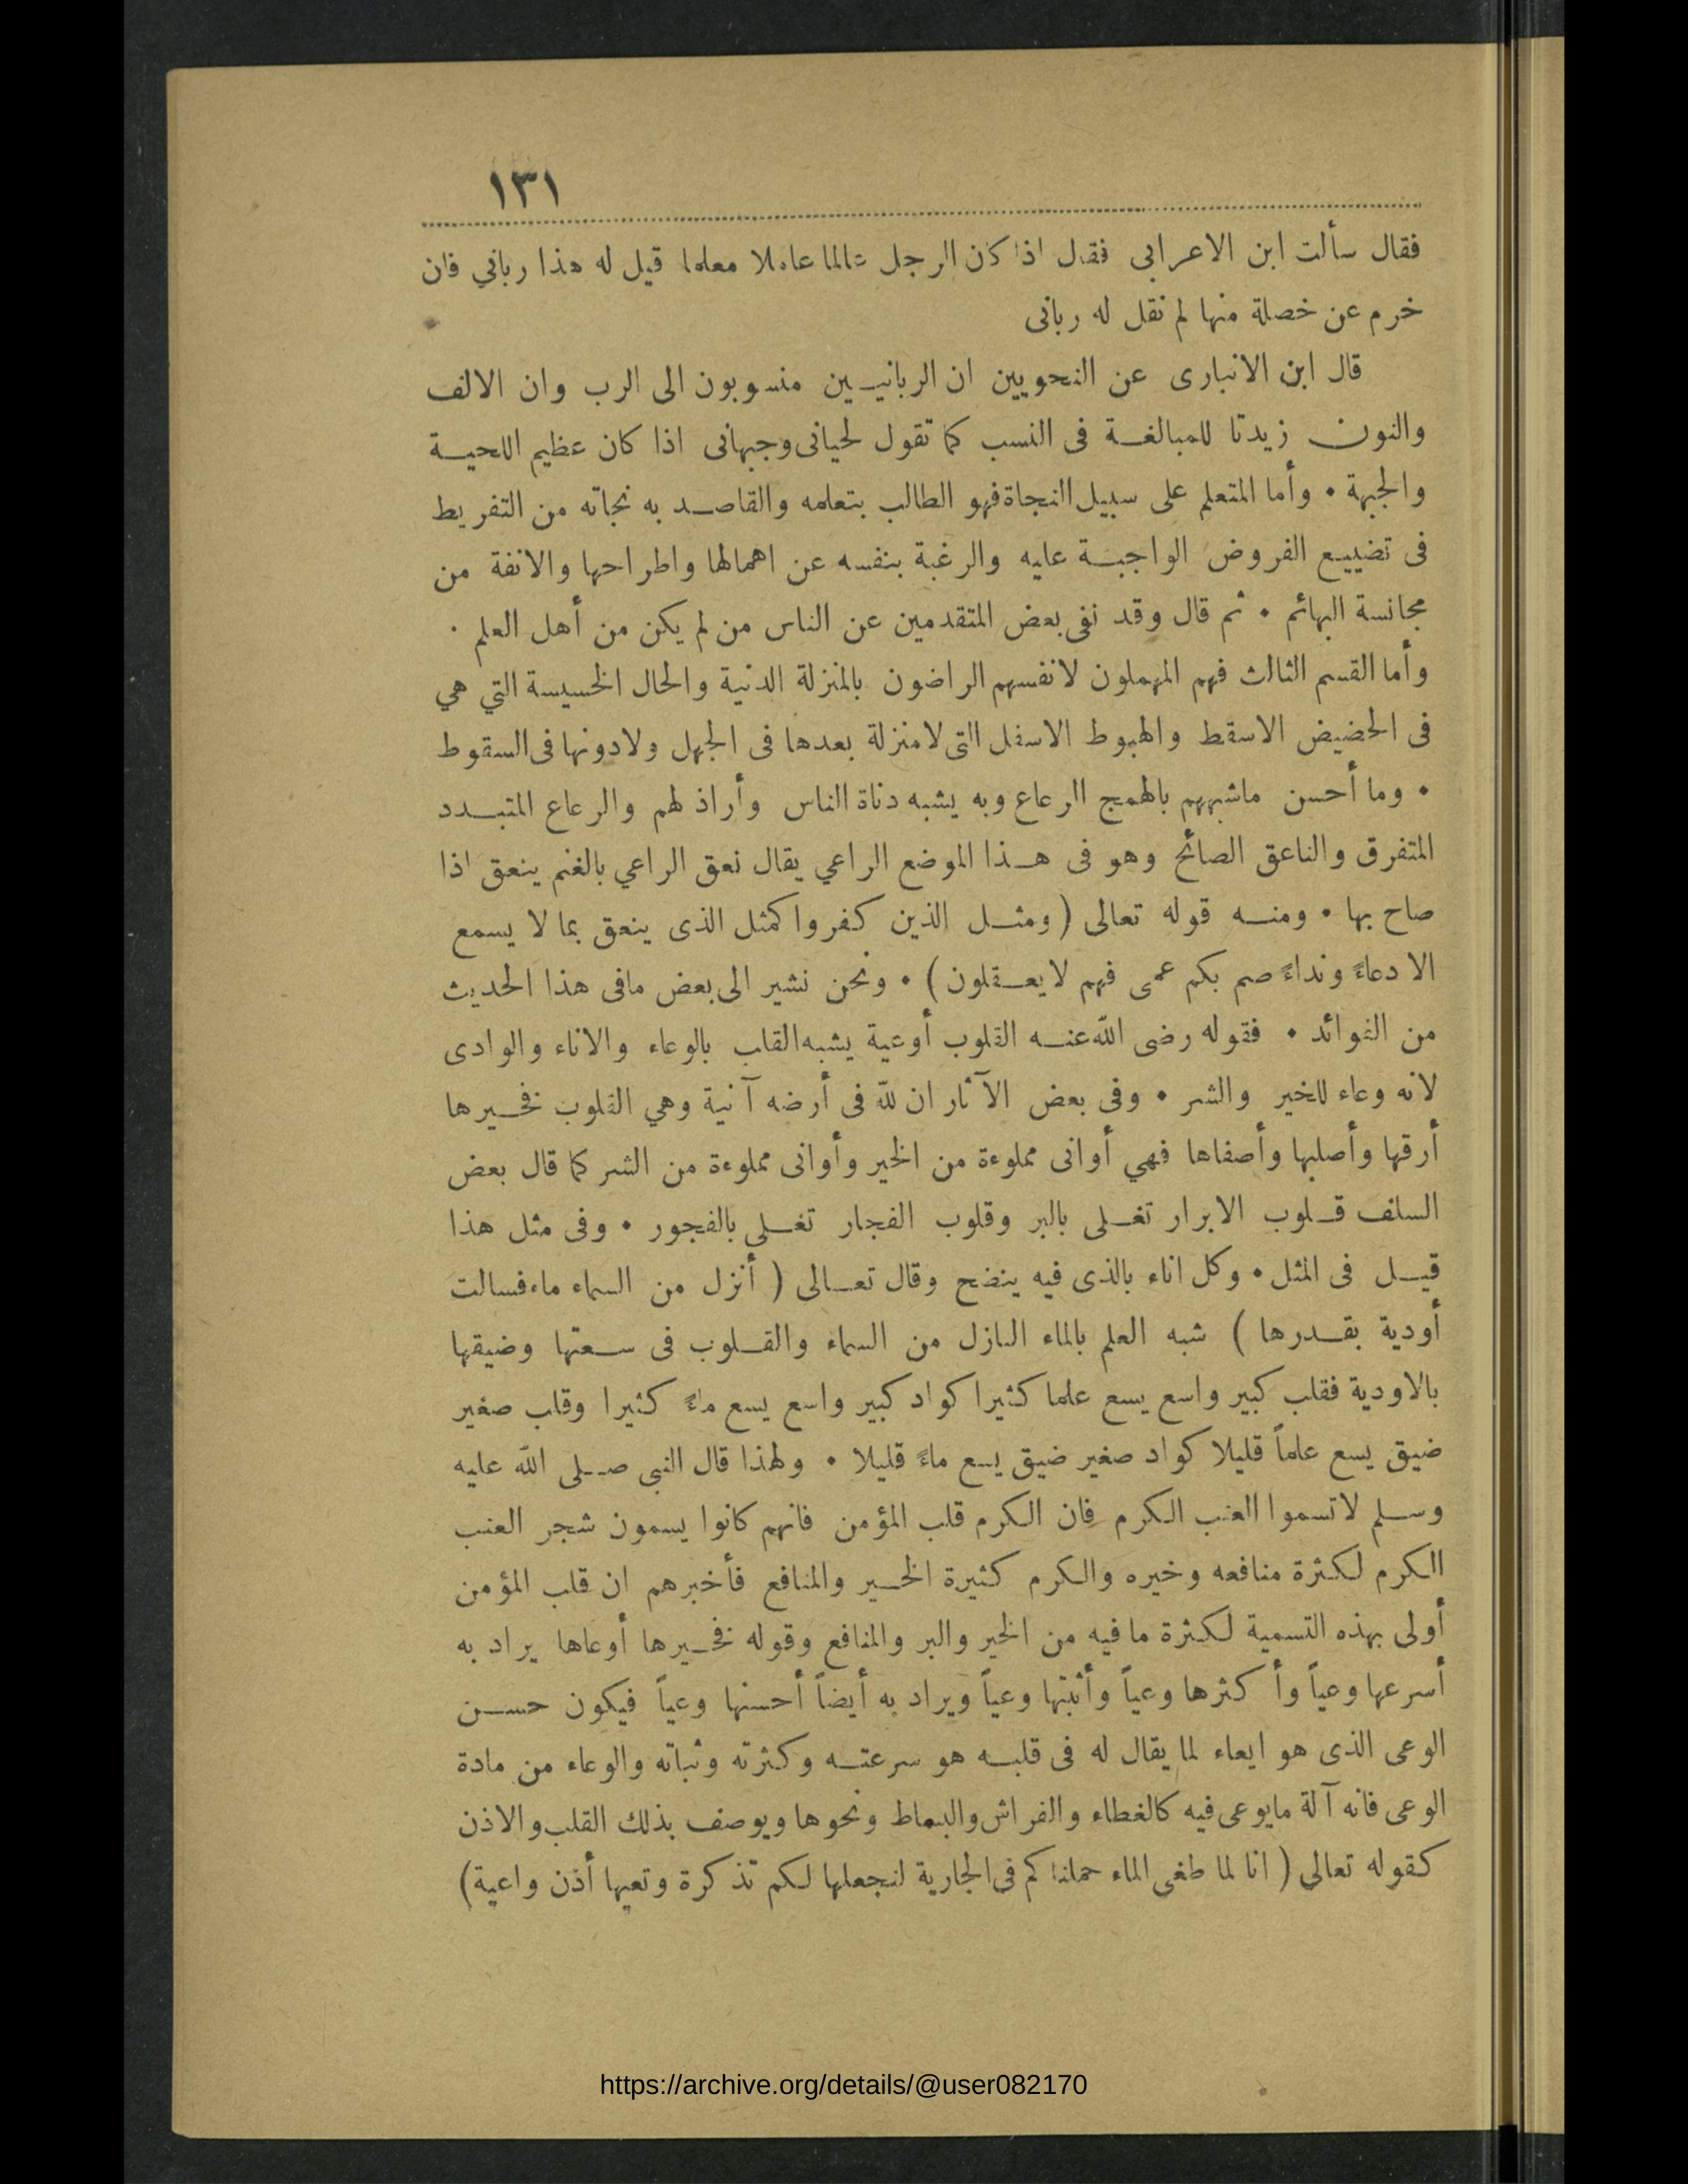 ١٣١
فقال سألت ابن الاعرابى فقال اذا كان الرجل عالما عاملا معلما قيل له هذا رباني فان
خرم عن خصلة منها لم نقل له ربانى
قال ابن الانبارى عن النحويين ان الربانيين منسوبون الى الرب وان الالف
والنون زيدتا للمبالغة فى النسب كما تقول لحيانى وجبهانى اذا كان عظيم اللحية
والجبهة • وأما المتعلم على سبيل النجاة فهو الطالب بتعلمه والقاصد به نجاته من التفريط
فى تضييع الفروض الواجبة عليه والرغبة بنفسه عن اهمالها واطراحها والانفة من
مجانسة البهائم • ثم قال وقد نفى بعض المتقدمين عن الناس من لم يكن من أهل العلم •
وأما القسم الثالث فهم المهملون لانفسهم الراضون بالمنزلة الدنية والحال الخسيسة التي هي
فى الحضيض الاسقط والهبوط الاسفل التى لامنزلة بعدها فى الجهل ولادونها فى السقوط
• وما أحسن ماشبههم بالهمج الرعاع وبه يشبه دناة الناس وأراذ لهم والرعاع المتبدد
المتفرق والناعق الصائح وهو فى هذا الموضع الراعي يقال نعق الراعي بالغنم ينعق اذا
صاح بها • ومنه قوله تعالى ( ومثل الذين كفروا كمثل الذى ينعق بما لا يسمع
الا دعاءً ونداءً صم بكم عمى فهم لايعقلون ) • ونحن نشير الى بعض مافى هذا الحديث
من الفوائد • فقوله رضى الله عنه القلوب أوعية يشبه القلب بالوعاء والاناء والوادى
لانه وعاء للخير والشر • وفى بعض الآثار ان لله فى أرضه آنية وهي القلوب فخيرها
أرقها وأصلبها وأصفاها فهي أوانى مملوءة من الخير وأوانى مملوءة من الشر كما قال بعض
السلف قلوب الابرار تغلى بالبر وقلوب الفجار تغلى بالفجور • وفى مثل هذا
قيل فى المثل • وكل اناء بالذى فيه ينضح وقال تعالى ( أنزل من السماء ماء فسالت
أودية بقدرها ) شبه العلم بالماء النازل من السماء والقلوب فى سعتها وضيقها
بالاودية فقلب كبير واسع يسع علما كثيرا كواد كبير واسع يسع ماءً كثيرا وقلب صغير
ضيق يسع علماً قليلا كواد صغير ضيق يسع ماءً قليلا • ولهذا قال النبى صلى الله عليه
وسلم لاتسموا العنب الكرم فان الكرم قلب المؤمن فانهم كانوا يسمون شجر العنب
الكرم لكثرة منافعه وخيره والكرم كثيرة الخير والمنافع فأخبرهم ان قلب المؤمن
أولى بهذه التسمية لكثرة مافيه من الخير والبر والمنافع وقوله فخيرها أوعاها يراد به
أسرعها وعياً وأكثرها وعياً وأثبتها وعياً ويراد به أيضاً أحسنها وعياً فيكون حسن
الوعى الذى هو ايعاء لما يقال له فى قلبه هو سرعته وكثرته وثباته والوعاء من مادة
الوعى فانه آلة مايوعى فيه كالغطاء والفراش والبساط ونحوها ويوصف بذلك القلب والاذن
كقوله تعالى ( انا لما طغى الماء حملناكم فى الجارية لنجعلها لكم تذكرة وتعيها أذن واعية)
https://archive.org/details/@user082170